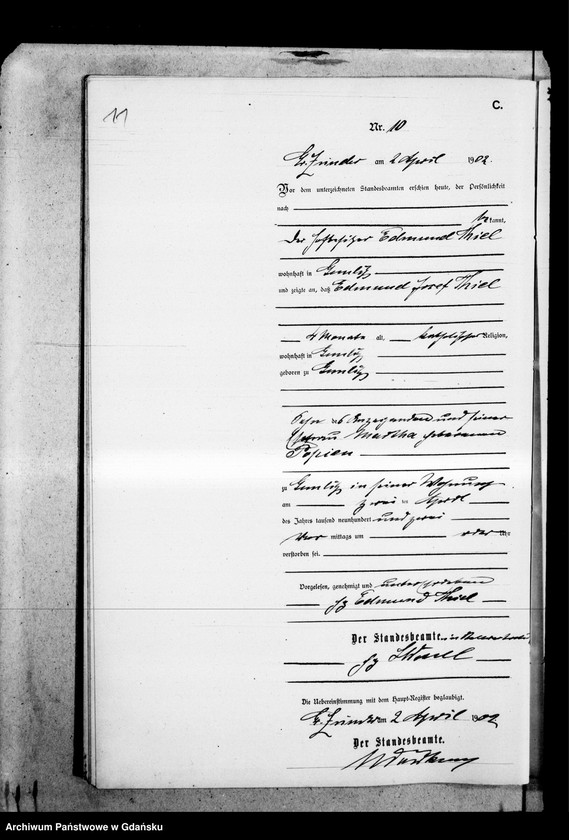 11
C.
Nr. 10
Gr. Zünder am 2 April 1902.
Vor dem unterzeichneten Standesbeamten erschien heute, der Persönlichkeit
nach
bekannt,
der Hofbesitzer Edmund Thiel
wohnhaft in Gemlitz
und zeigte an, daß Edmund Josef Thiel
4 Monate alt, katholischer Religion,
wohnhaft in Gemlitz
geboren zu Gemlitz
Sohn des Anzeigenden und seiner
Ehefrau Martha geborenen
Popien
zu Gemlitz in seiner Wohnung
am zwei ten April
des Jahres tausend neunhundert und zwei
Vor mittags um Uhr
verstorben sei.
Vorgelesen, genehmigt und unterschrieben
gz Edmund Thiel
Der Standesbeamte. in Vertretung
gz
Die Uebereinstimmung mit dem Haupt-Register beglaubigt.
Gr. Zünder am 2 April 1902
Der Standesbeamte.
Archiwum Państwowe w Gdańsku